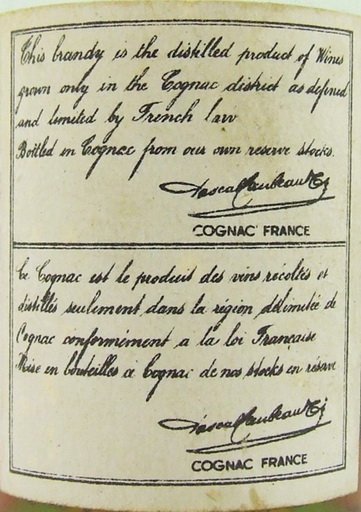 This brandy is the distilled product of Wines
grown only in the Cognac district as defined
and limited by French law
Bottled in Cognac from our own reserve stocks.
COGNAC FRANCE
Ce Cognac est le produit des vins récoltés et
distillés seulement dans la région délimitée de
Cognac conformément a la loi Française
Mise en bouteilles à Cognac de nos stocks en réserve
COGNAC FRANCE